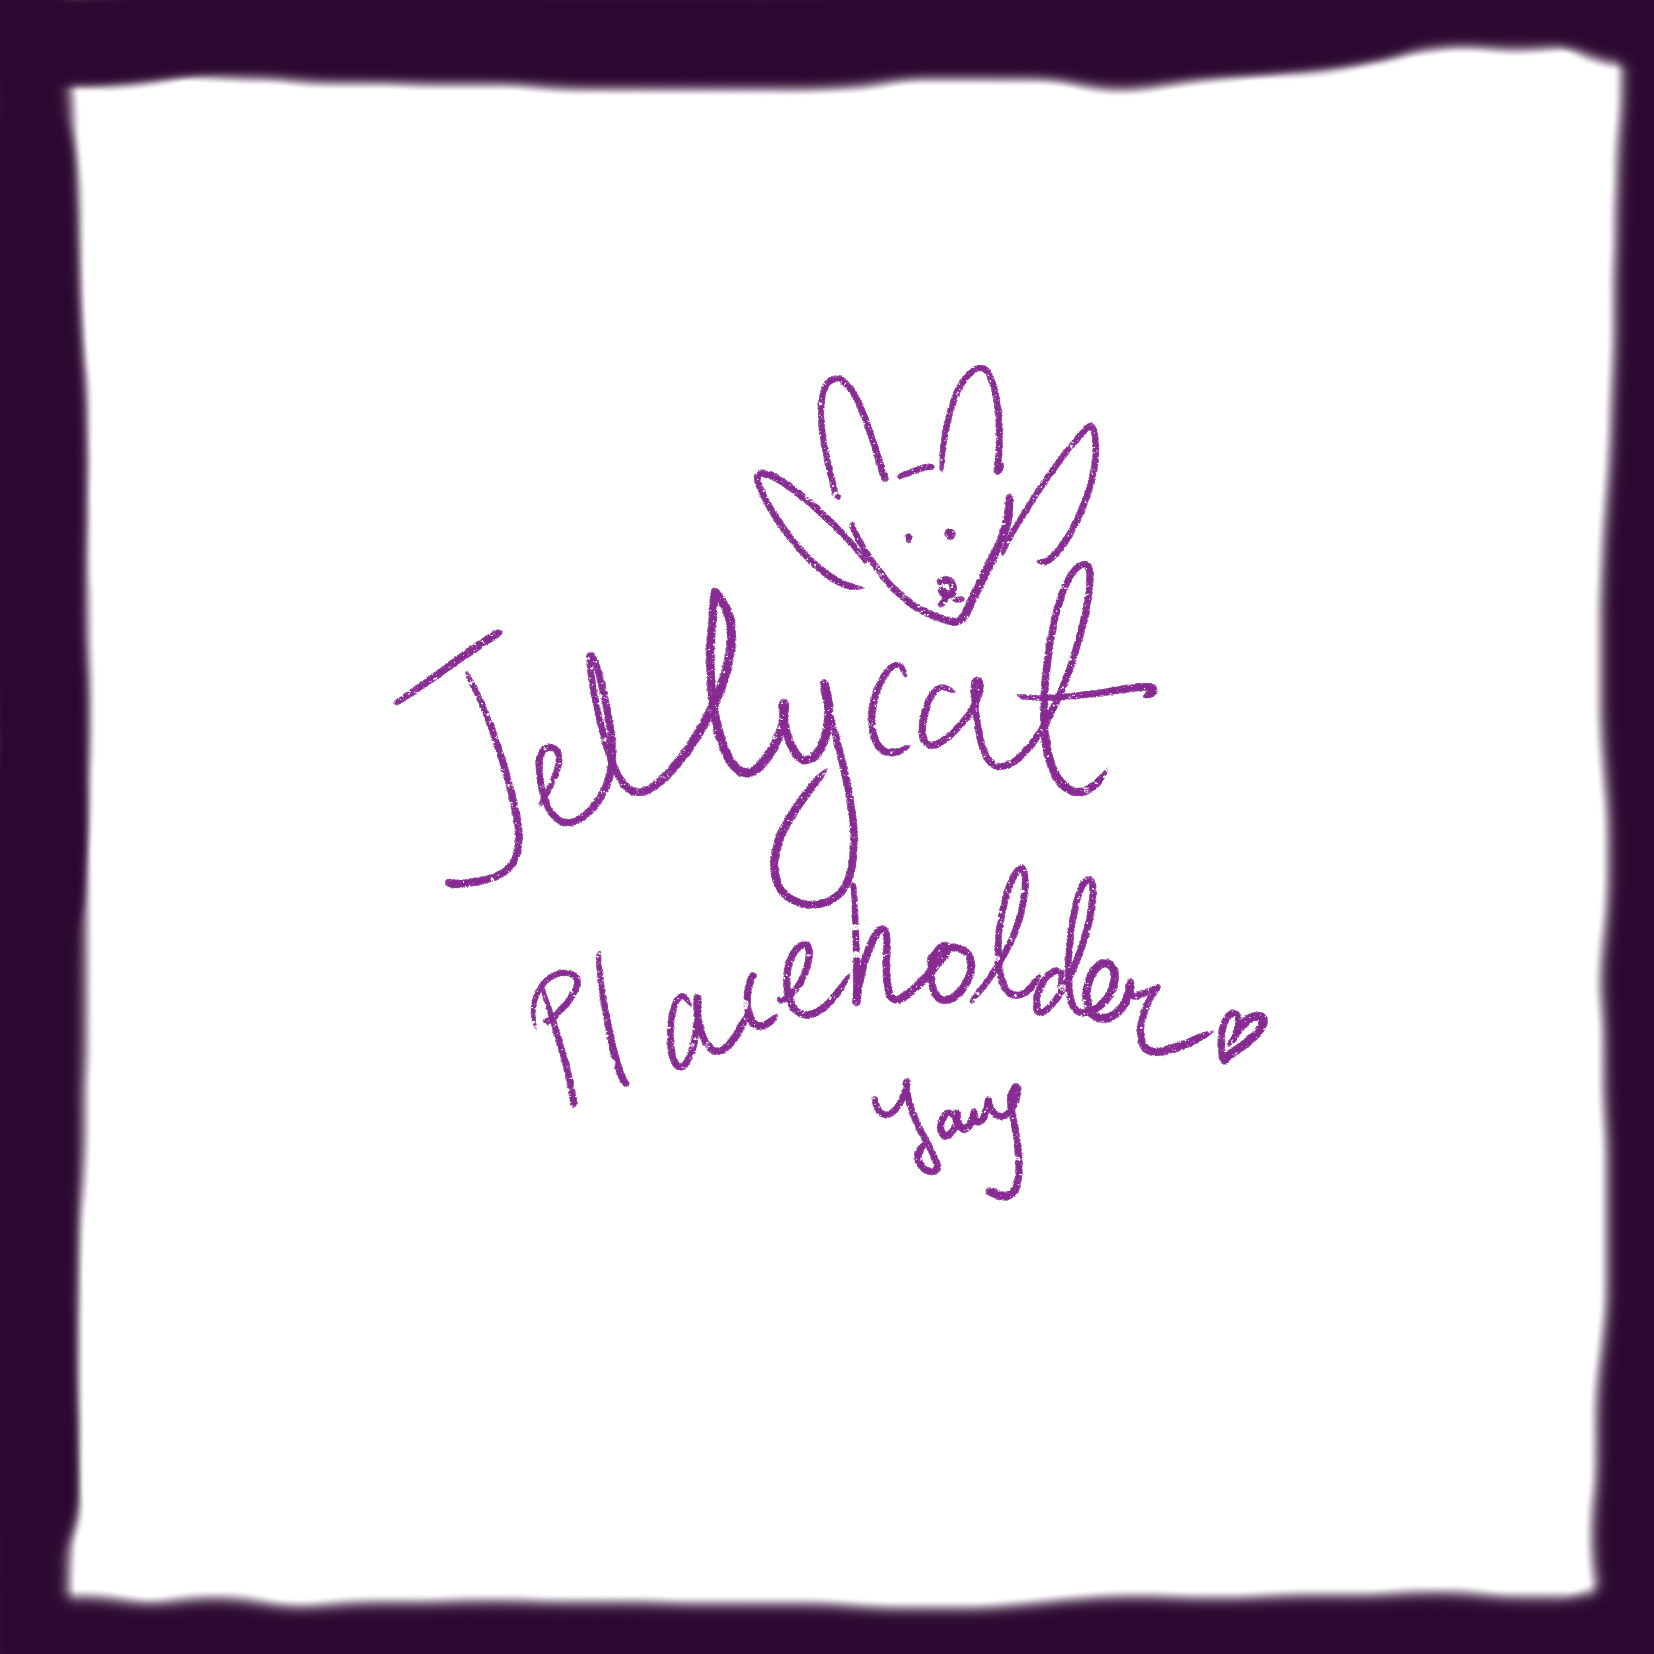 Jellycat
Placeholder
Yang